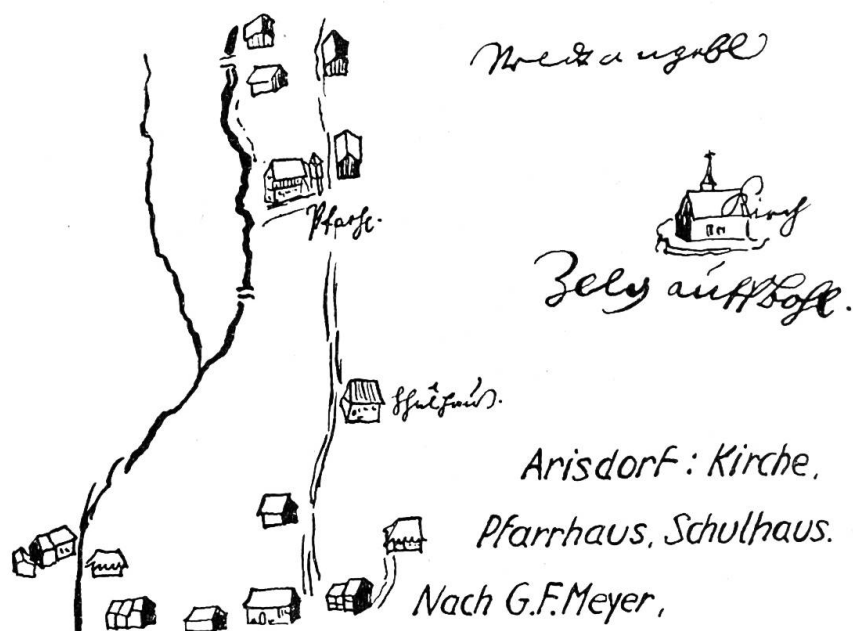 Kirch
Zelg auff Bohl.
Pfarh.
Schulhauß.
Arisdorf: Kirche,
Pfarrhaus, Schulhaus.
Nach G.F. Meyer,